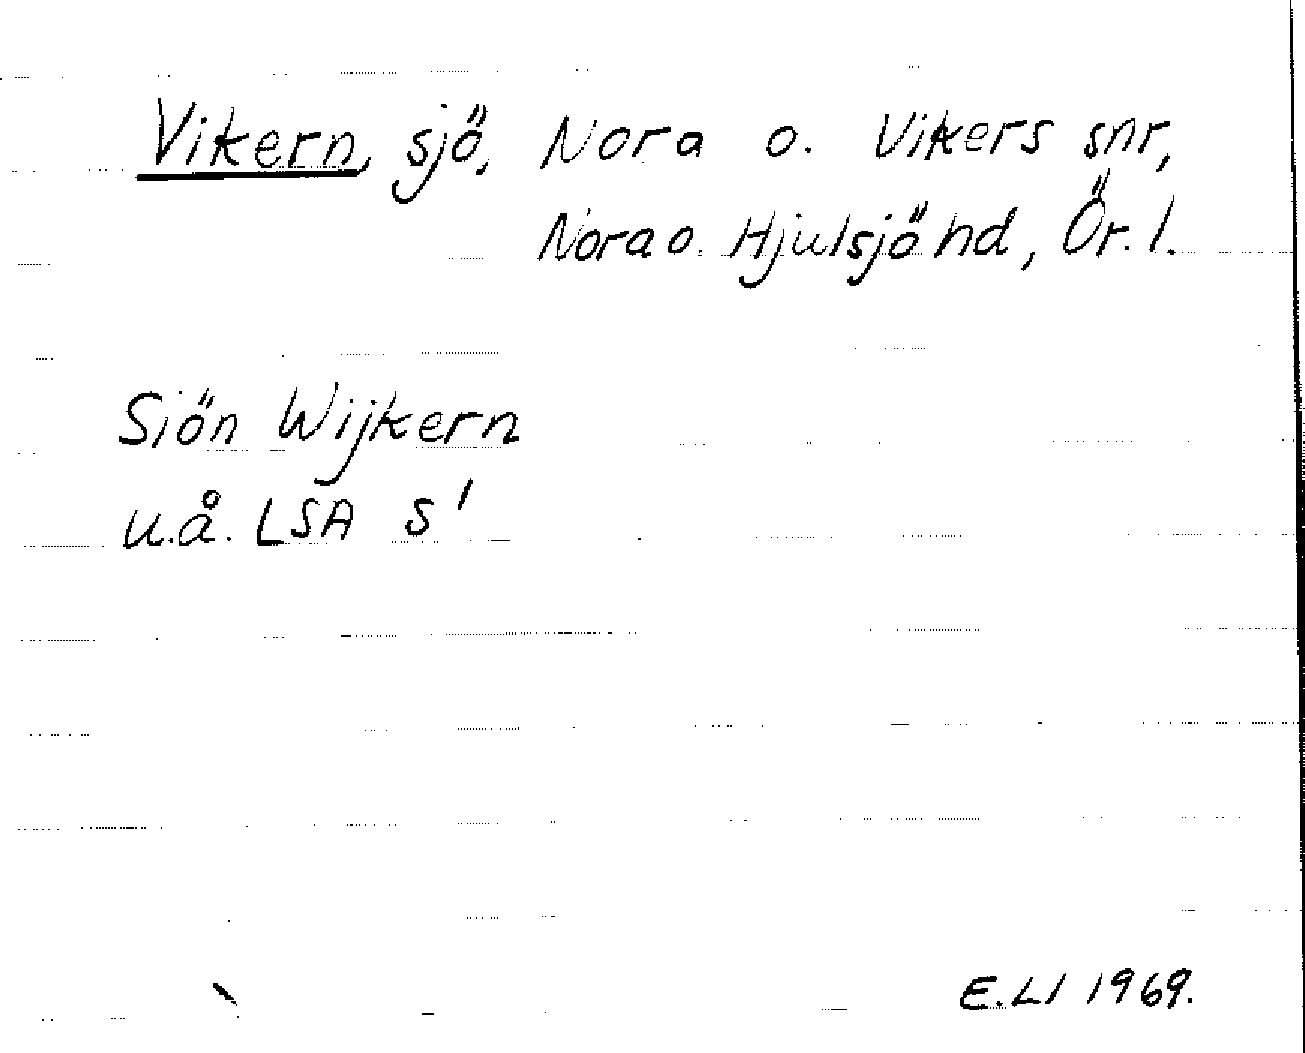 Vikern, sjö, Nora o. Vikers snr,
Nora o. Hjulsjö hd, Ör. l.
Siön Wijkern
u.å. LSA S 1
E.LI 1969.